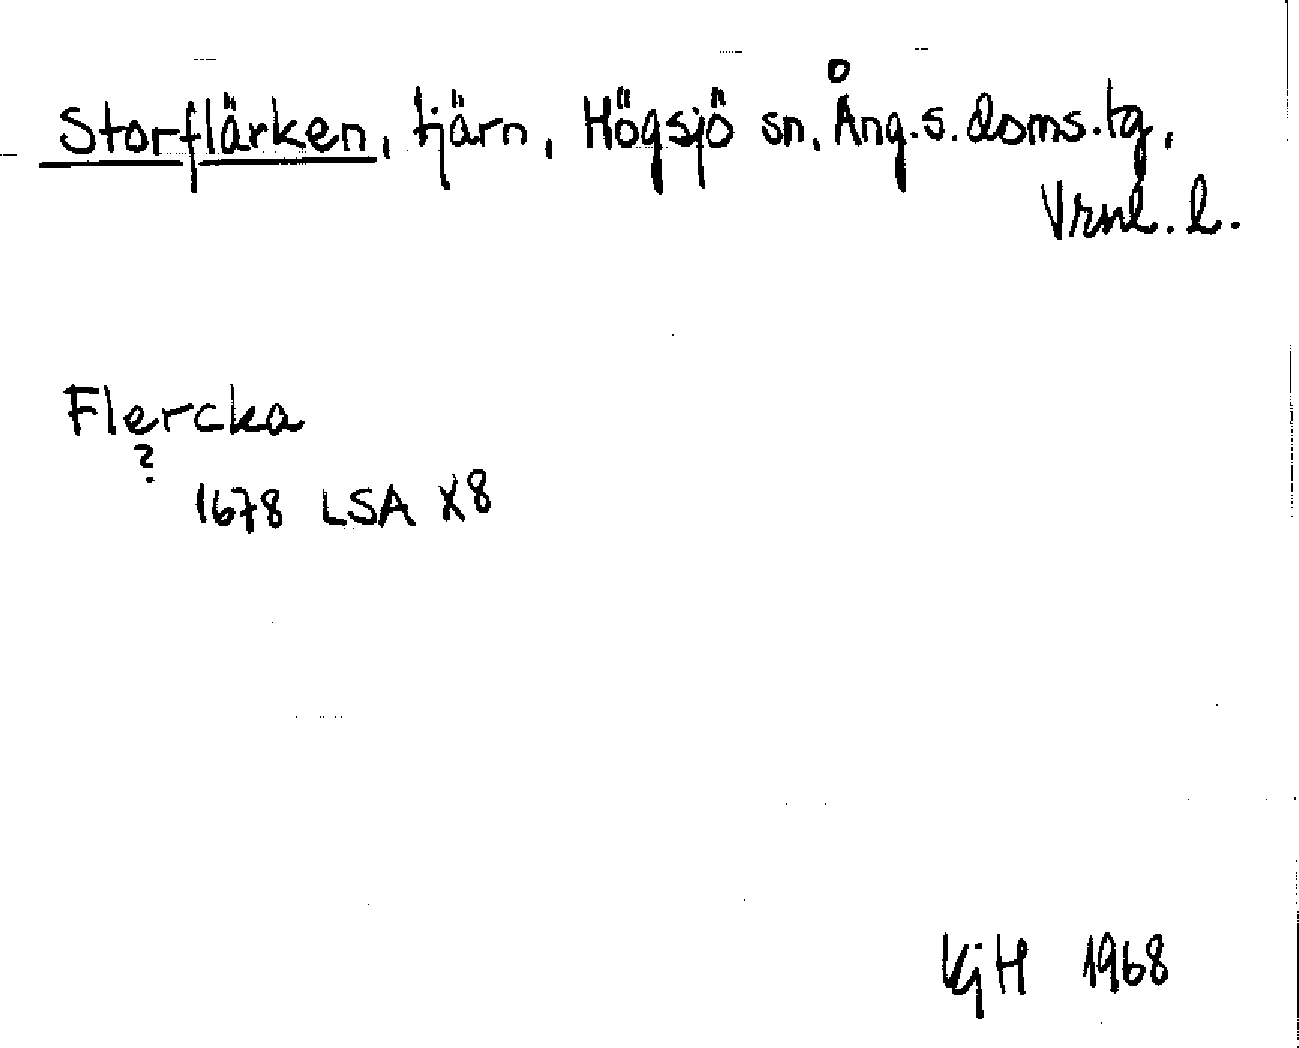 Storflärken, tjärn, Högsjö sn, Ång.s.doms.tg,
Vrnl. l.
Flercka
?
1678 LSA X8
KjH 1968